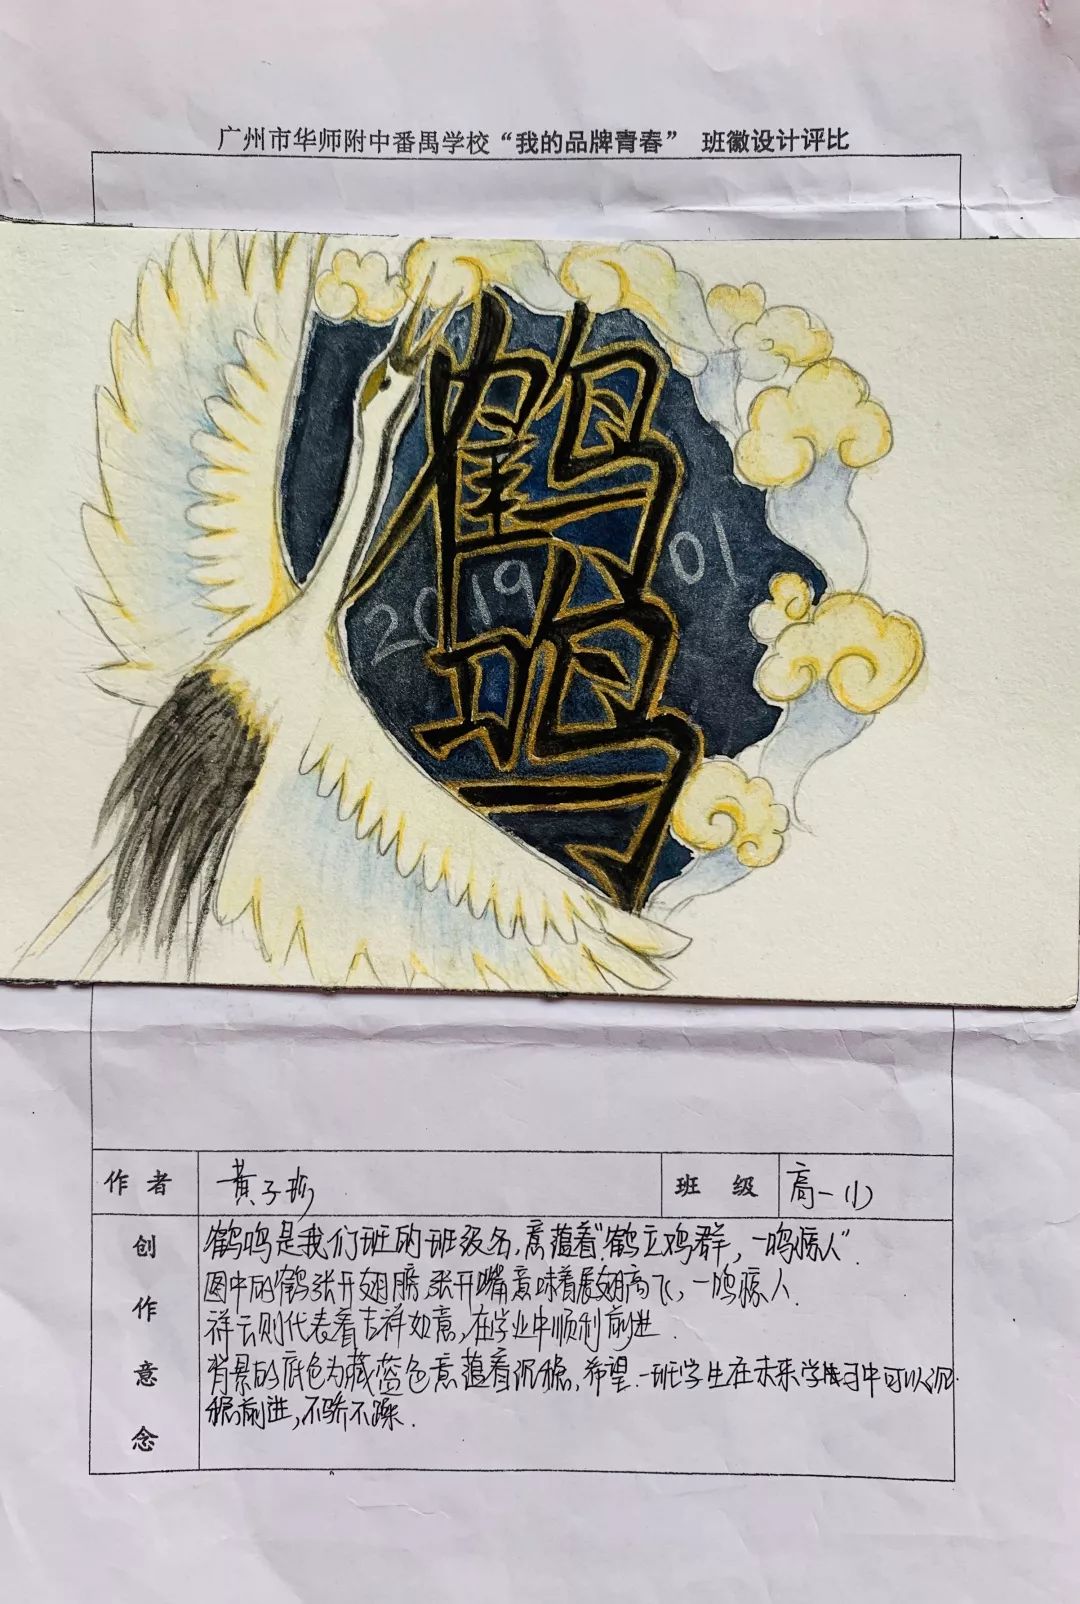 广州市华师附中番禺学校“我的品牌青春” 班徽设计评比
鹤鸣
2019 01
作者 黄子珍 班级 高一(1)
创作意念
鹤鸣是我们班的班级名,意蕴着“鹤立鸡群,一鸣惊人”
图中的鹤张开翅膀,张开嘴意味着展翅高飞,一鸣惊人.
祥云则代表着吉祥如意,在学业中顺利前进.
背景的底色为藏蓝色意蕴着沉稳,希望一班学生在未来学习中可以沉
稳前进,不骄不躁.